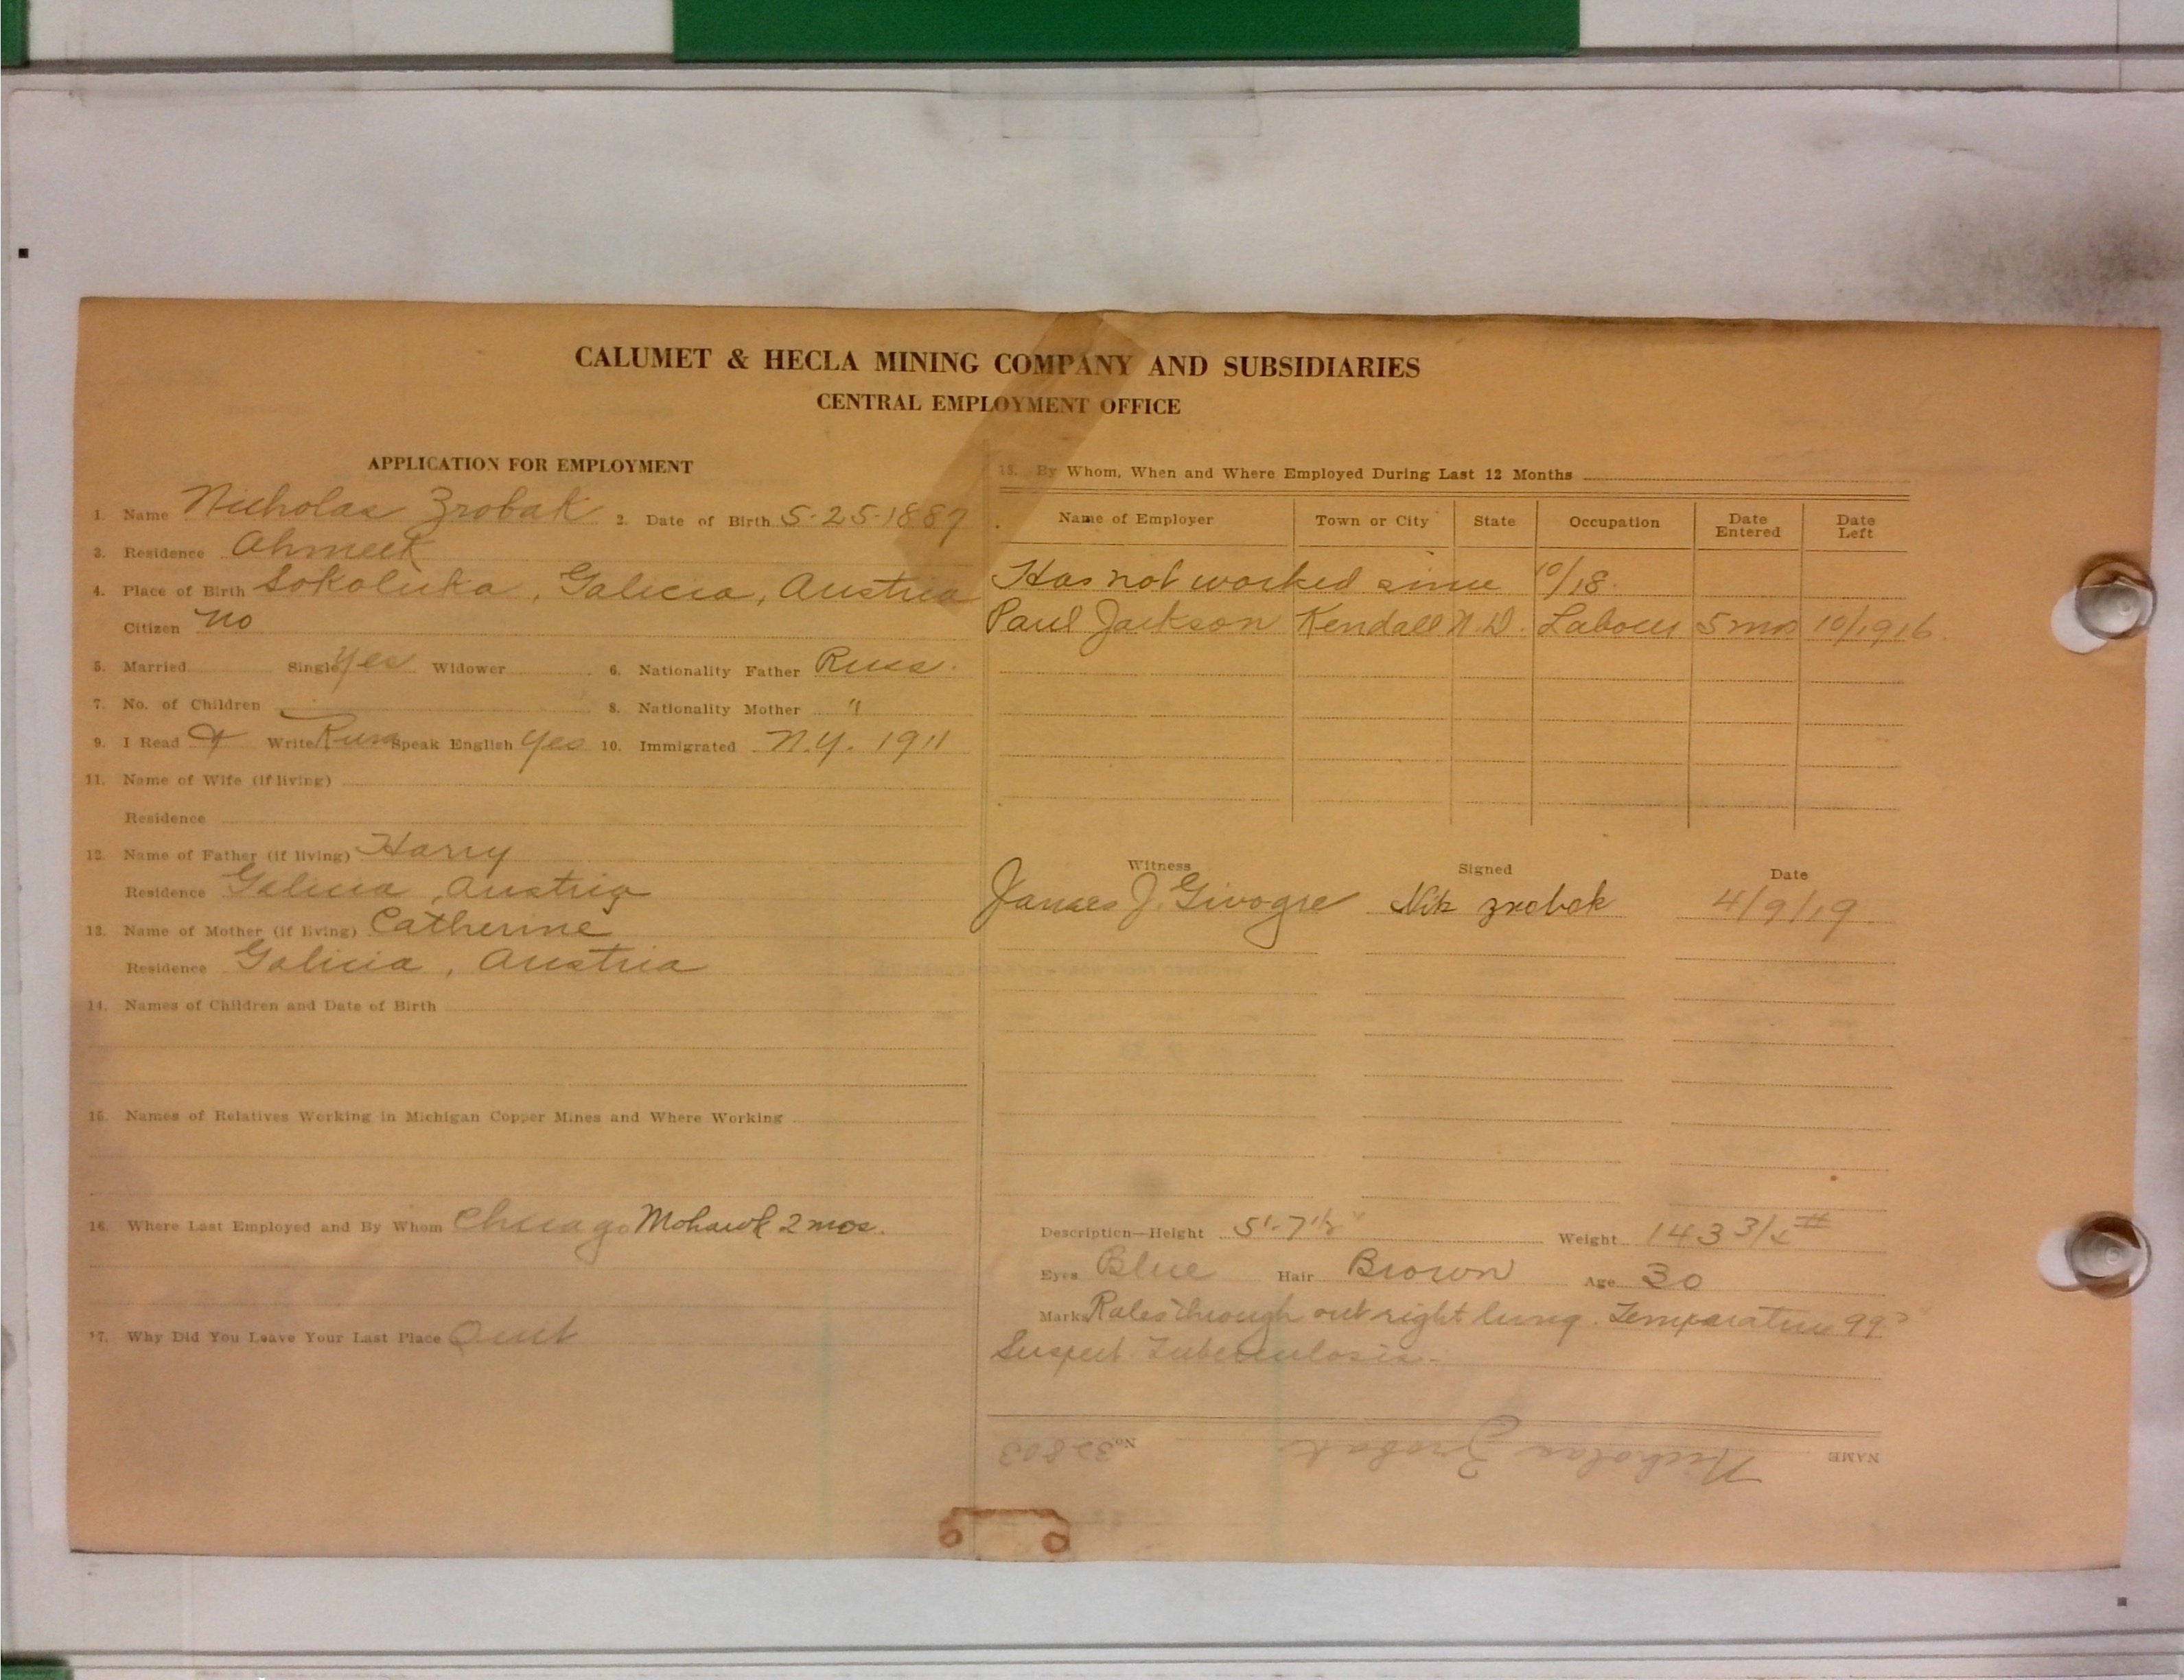 CALUMET & HECLA MINING COMPANY AND SUBSIDIARIES
CENTRAL EMPLOYMENT OFFICE
APPLICATION FOR EMPLOYMENT
1. Name Nicholas Zrobak 2. Date of Birth 5-25-1889
3. Residence Ahmeek
4. Place of Birth Sokoluka, Galicia, Austria
Citizen no
5. Married Single Yes Widower 6. Nationality Father Russ.
7. No. of Children 8. Nationality Mother "
9. I Read & Write Russ Speak English Yes 10. Immigrated N.Y. 1911
11. Name of Wife (if living)
Residence
12. Name of Father (if living) Harry
Residence Galicia, Austria
13. Name of Mother (if living) Catherine
Residence Galicia, Austria
14. Names of Children and Date of Birth
15. Names of Relatives Working in Michigan Copper Mines and Where Working
16. Where Last Employed and By Whom Chicago Mohawk 2 mos.
17. Why Did You Leave Your Last Place Quit
18. By Whom, When and Where Employed During Last 12 Months
Name of Employer Town or City State Occupation Date Entered Date Left
Has not worked since 10/18.
Paul Jackson Kendall N.D. Labour 5 mos 10/1916
Witness Signed Date
James J. Givogre Nik zrobek 4/9/19
Description—Height 5'-7 1/2" Weight 143 3/4 #
Eyes Blue Hair Brown Age 30
Marks Rales through out right lung. Temperature 99
Suspect Tuberculosis.
NAME Nicholas Zrobak No. 32803